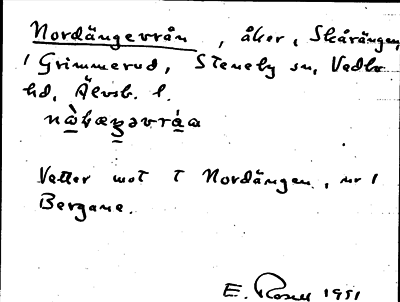 Nordängevrån, åker, Skårängen,
1 Grimmerud, Steneby sn, Vedbo
hd, Älvsb. l.
Vetter mot t Nordängen, nr 1
Bergane.
E. Rosell 1951